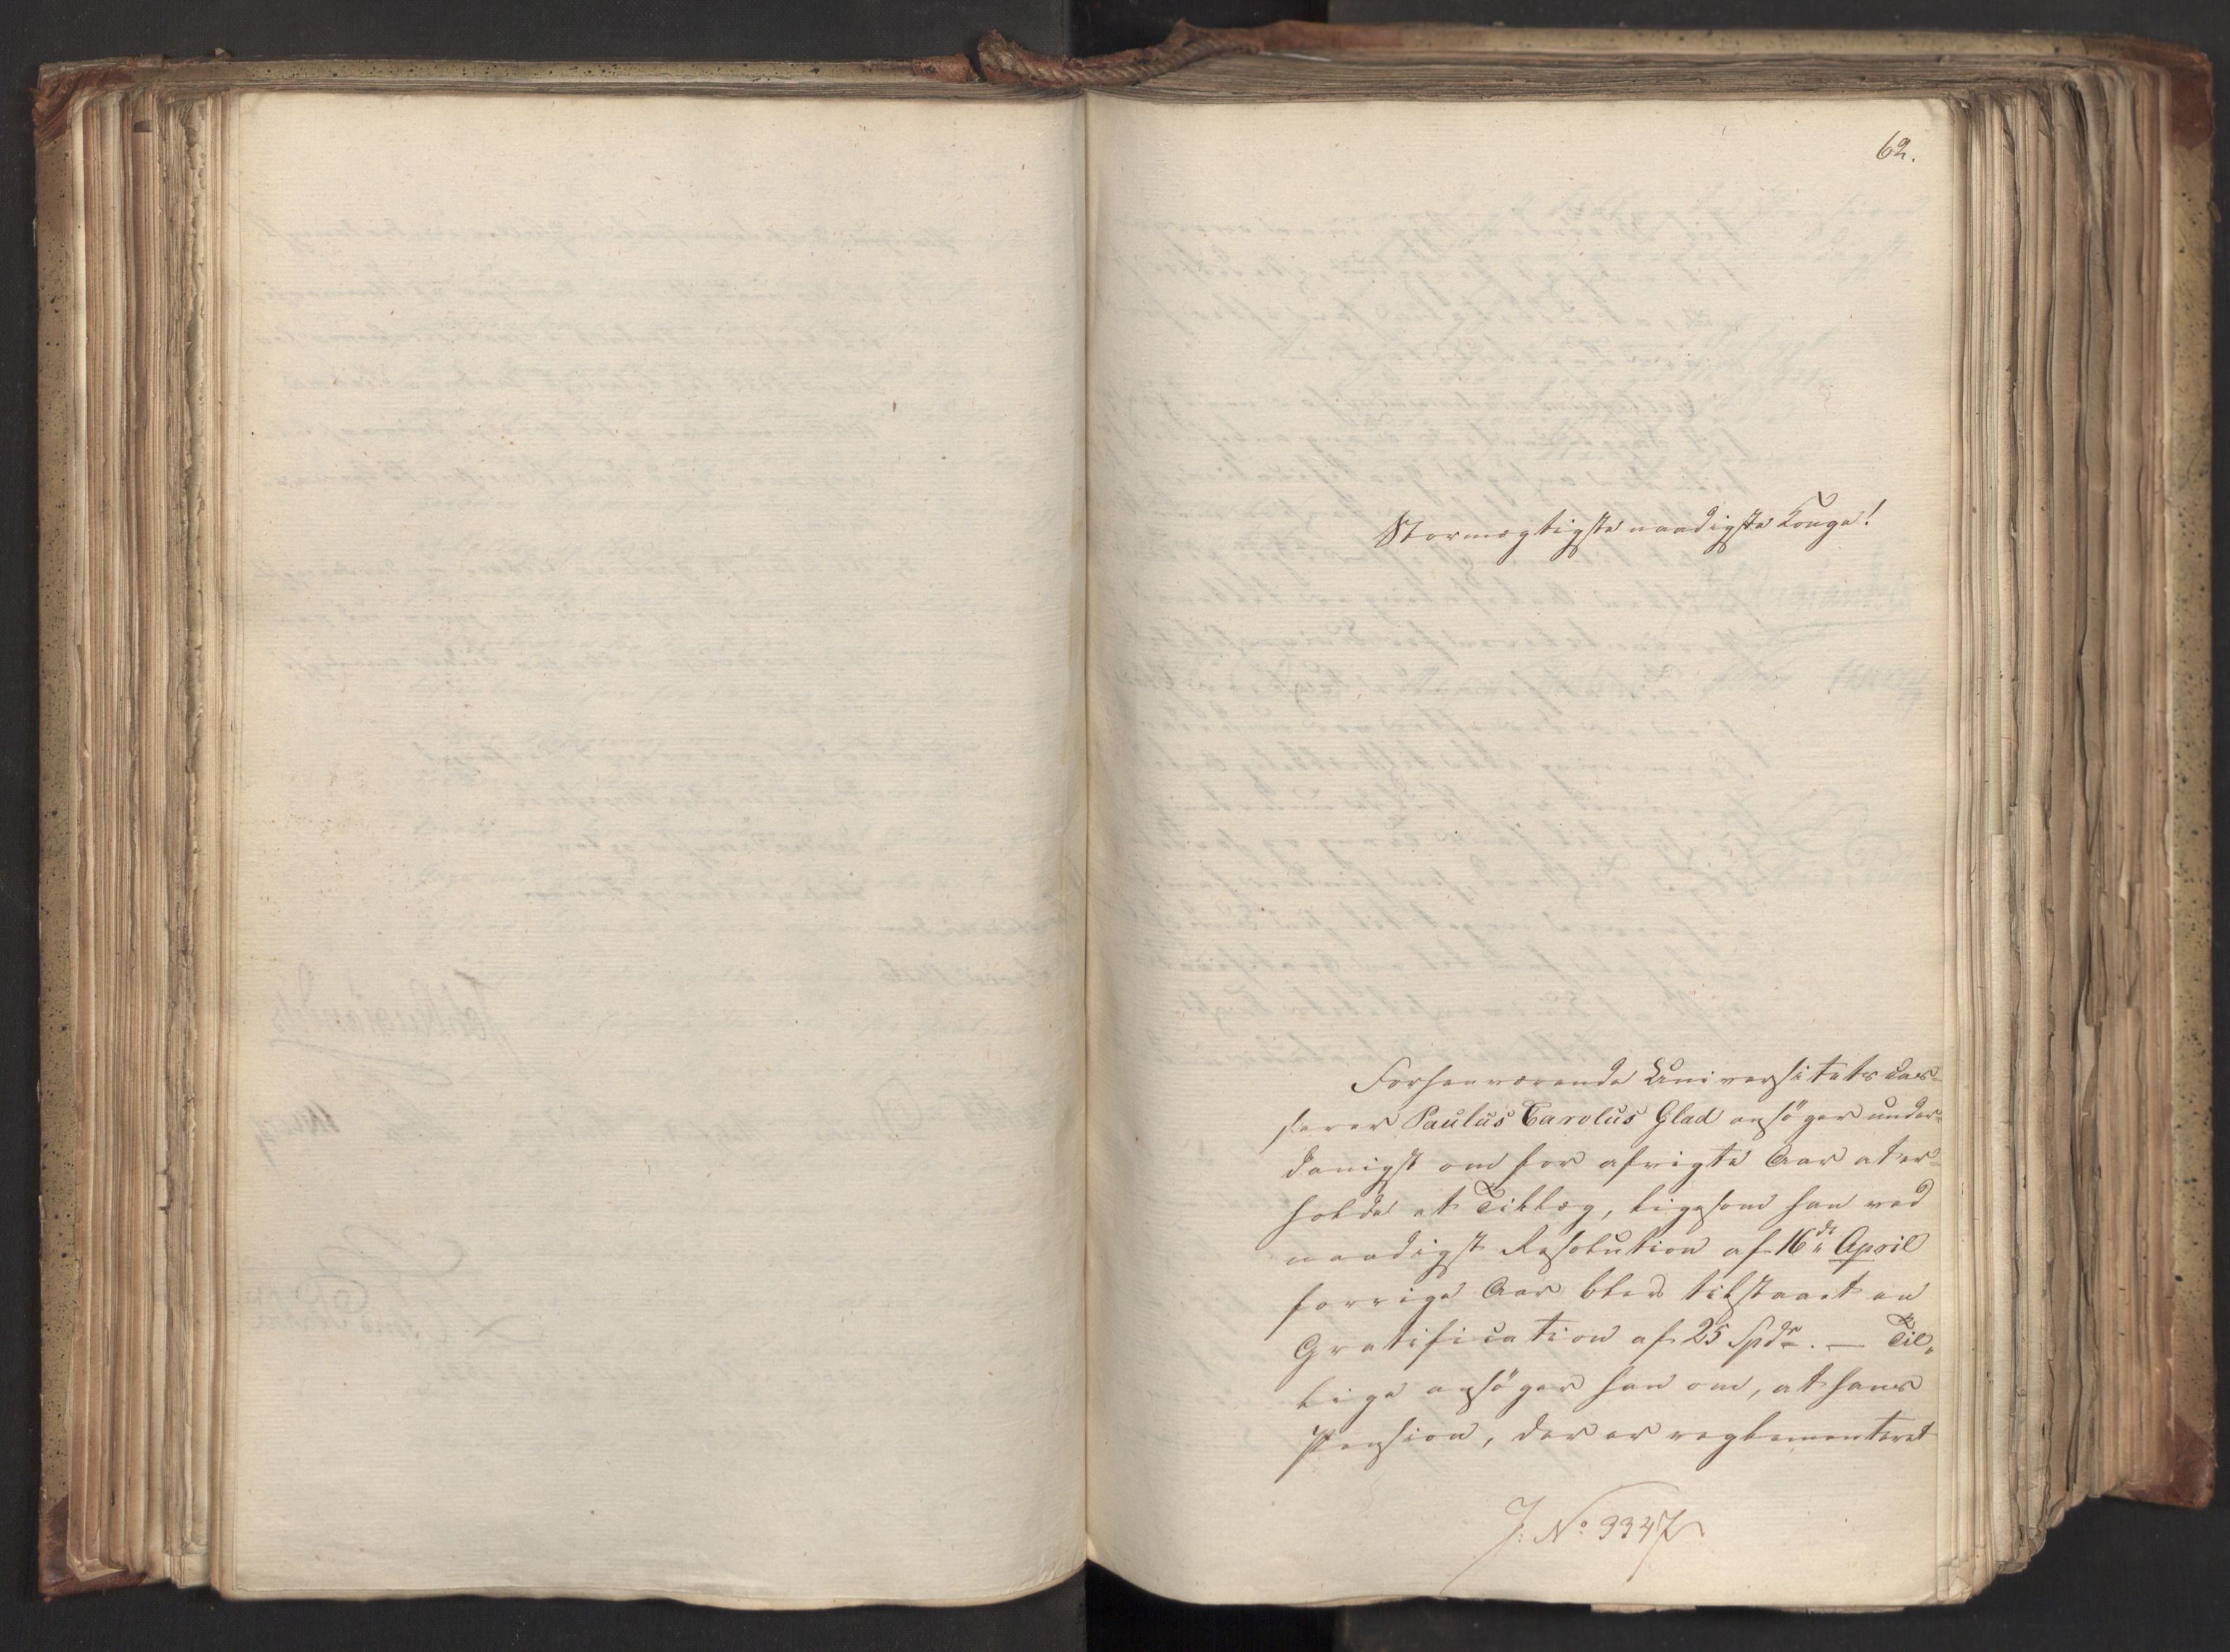 62.
Stormægtigste naadigste Konge!
Forhenværende Universitetscas-
serer Paulus Carolus Glad ansöger under-
danigst om for afvigte Aar at er-
holde et Tillæg, ligesom han ved
naadigst Resolution af 16de April
forrige Aar blev tilstaaet en
Gratification af 25 Spdr. — Til-
lige ansöger han om, at hans
Pension, der er reglementeret
J: No 3347